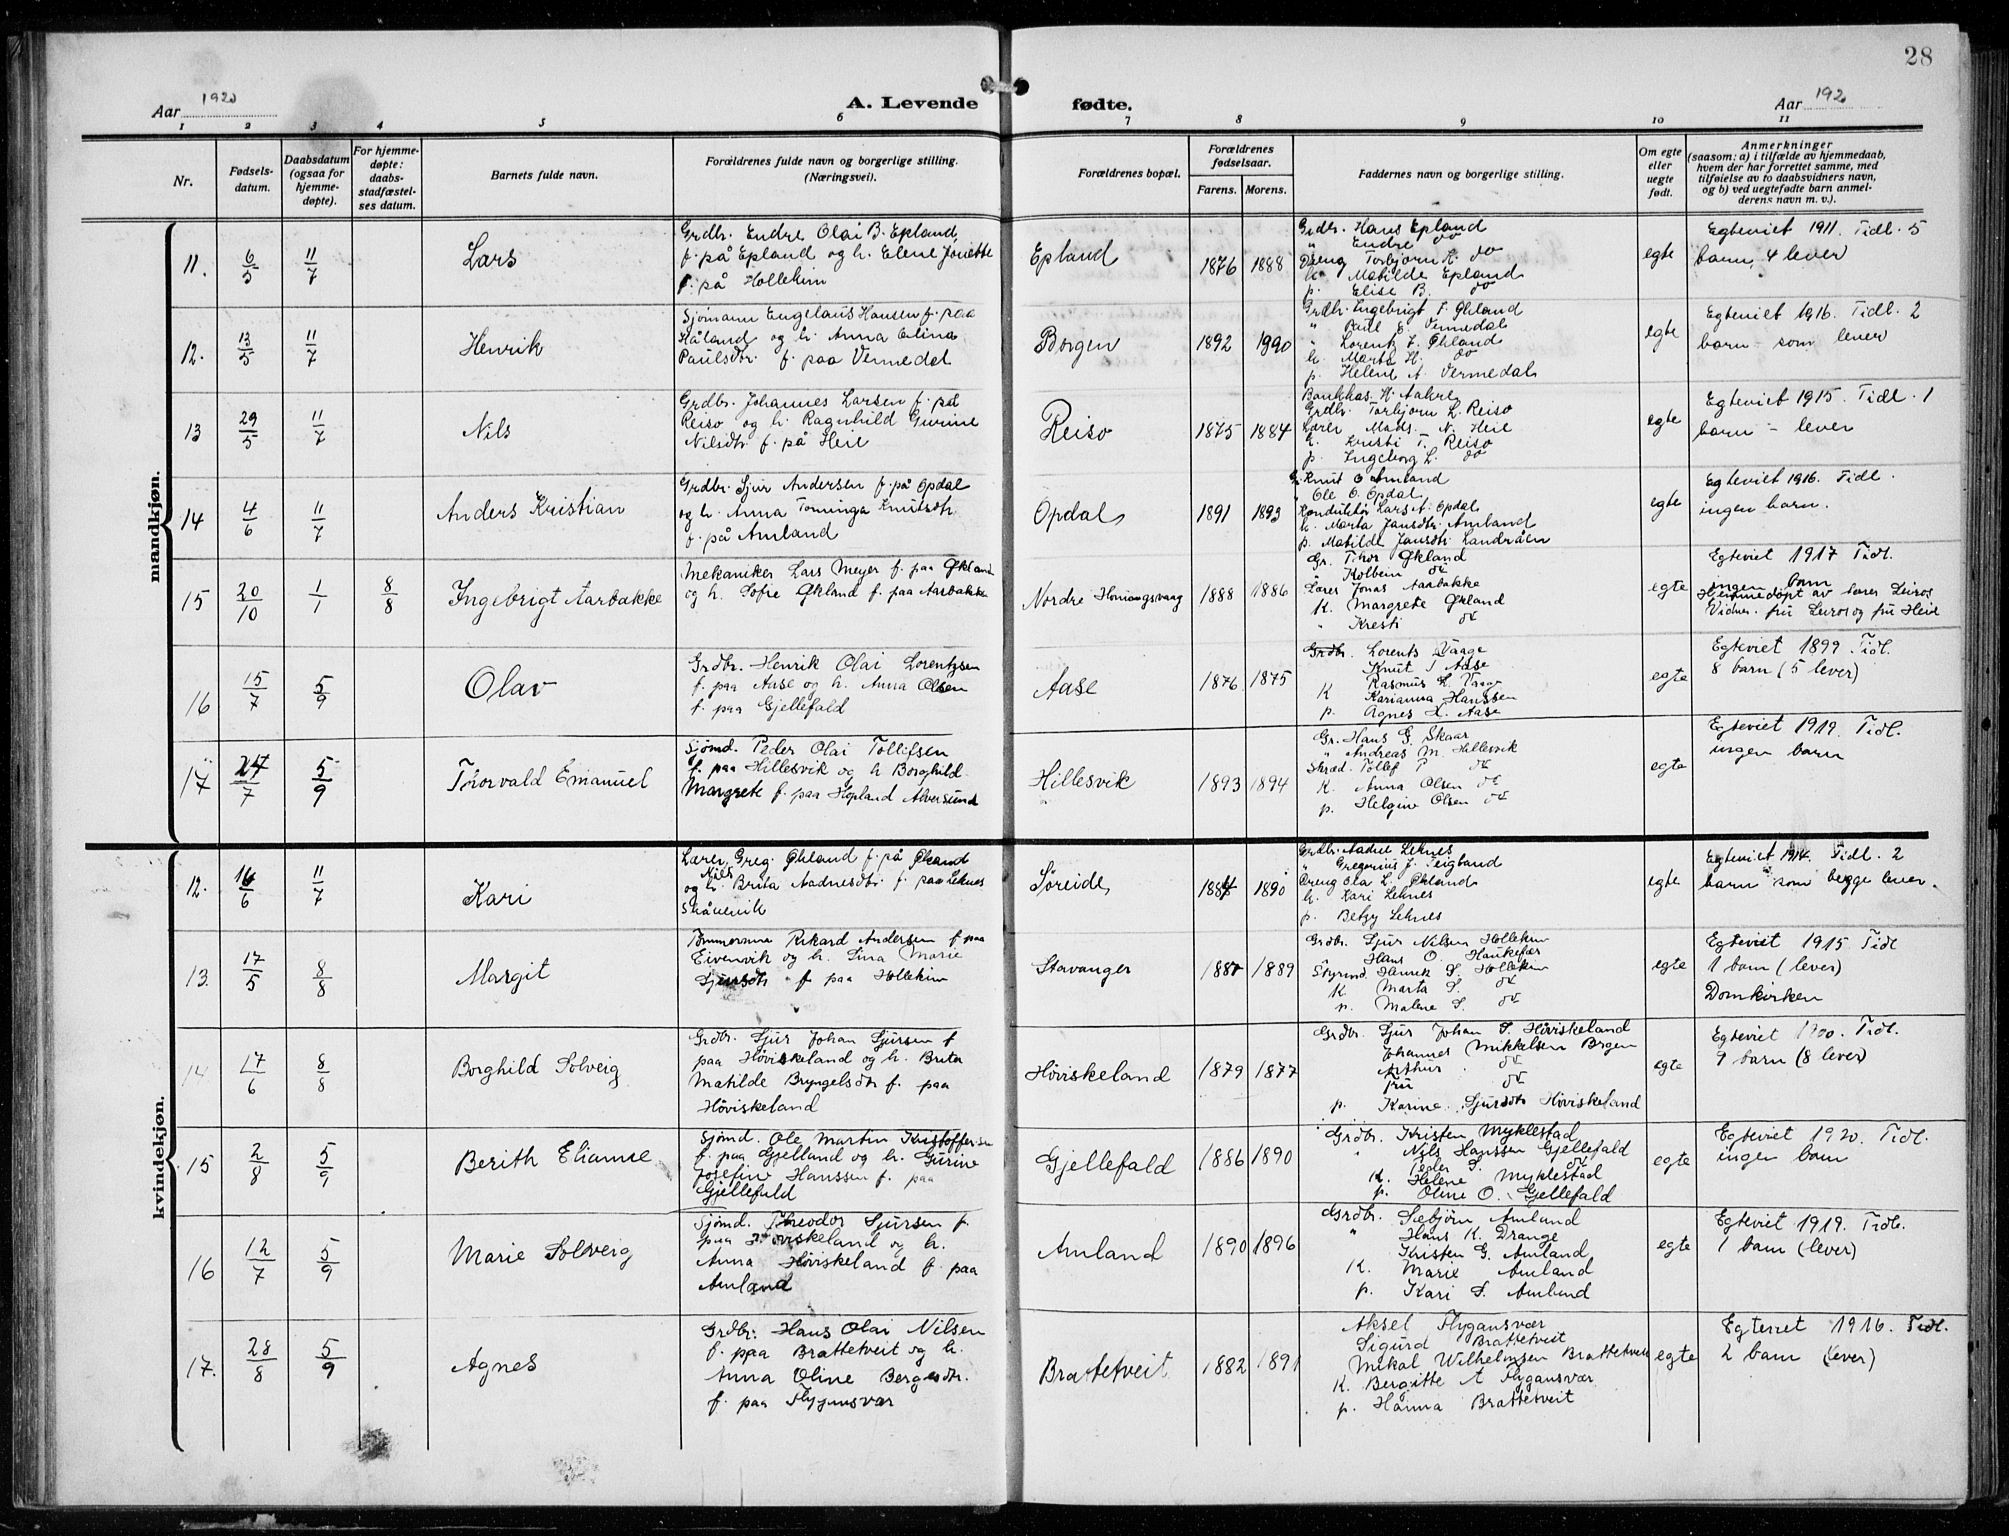 28
Aar 1920
A. Levende fødte.
Aar 192
1 2 3 4 5 6 7 8 9 10 11
Nr.
Fødsels-
datum.
Daabsdatum
(ogsaa for
hjemme-
døpte).
For hjemme-
døpte:
daabs-
stadfæstel-
ses datum.
Barnets fulde navn.
Forældrenes fulde navn og borgerlige stilling.
(Næringsvei).
Forældrenes bopæl.
Forældrenes
fødselsaar.
Farens. Morens.
Faddernes navn og borgerlige stilling.
Om egte
eller
uegte
født.
Anmerkninger
(saasom: a) i tilfælde av hjemmedaab,
hvem der har forrettet samme, med
tilføielse av to daabsvidners navn,
og b) ved uegtefødte barn anmel-
derens navn m. v.).
mandkjøn.
11. 6/5 11/7 Lars
Grdbr. Endre Olai B. Epland
f. på Epland og h. Elene Jonette
f. på Hollekim
Epland 1876 1888
Grdbr. Hans Epland
" Endre do
Dreng Torbjørn H. do
k. Matilde Epland
p. Elise B. do
egte
Egteviet 1911. Tidl. 5
barn, 4 lever
12. 13/5 11/7 Henrik
Sjømann Engelaus Hansen f. paa
Håland og h. Anna Elina
Paulsdtr. f. paa Vermedal
Borgen 1892 1990
Grdbr. Ingebrigt T. Økland
" Paul E. Vermedal
" Lorentz J. Økland
k. Marta H. do
p. Helene A. Vermedal
egte
Egteviet 1916. Tidl. 2
barn - som lever
13 29/5 11/7 Nils
Grdbr. Johannes Larsen f. på
Reisø og h. Ragnhild Gurine
Nilsdtr f. på Heie
Reisø 1875 1884
Bankkas. H. Aakre
Grdbr. Torbjørn L. Reisø
Lærer Mats. N. Heie
k. Kristi T. Reisø
p. Ingeborg L. do
egte
Egteviet 1915. Tidl. 1
barn - lever
14 4/6 11/7 Anders Kristian
Grdbr. Sjur Andersen f. på Opdal
og h. Anna Tominga Knutsdtr.
f. på Amland
Opdal 1891 1893
G. Knut O Amland
" Ole O. Opdal
Konduktør Lars A. Opdal
k. Marta Jansdtr. Amland
p. Matilde Jansdtr Landråen
egte
Egteviet 1916. Tidl.
ingen barn.
15 20/10 1/1 8/8 Ingebrigt Aarbakke
Mekaniker Lars Meyer f. paa Økland
og h. Sofie Økland f. paa Aarbakke
Nordre Honingsvaag 1888 1886
Gr. Thor Økland
" Kolbein do
Lærer Jonas Aarbakke
K. Margrete Økland
" Kresti do
egte
Egteviet 1917 Tidl.
ingen barn
Hjemmedøpt av lærer Leiros
Vidner. fru Leiros og fru Heie
16 15/7 5/9 Olav
Grdbr. Henrik Olai Lorentzsen
f. paa Aase og h. Anna Olsen
f. paa Gjellefald
Aase 1876 1875
Grdbr. Lorents Vaage
Knut J Aase
Rasmus L. Vaage
K Karianna Hanssen
p. Agnes L. Aase
egte
Egteviet 1899 Tidl.
8 barn (5 lever)
17 27/7 5/9 Thorvald Emanuel
Sjømd. Peder Olai Tollefsen
f. paa Hillesvik og h Borghild
Margrete f. paa Hopland Alversund
Hillesvik 1893 1894
Gr. Hans G. Skaar
" Andreas M. Hillesvik
Skræd. Tollef P do
K. Anna Olsen do
p. Helgine Olsen do
egte
Egteviet 1919. Tidl.
ingen barn
kvindekjøn.
12. 16/6 11/7 Kari
Lærer Nils Greg. Økland f. på Økland
og h. Brita Aadnesdtr f. paa Leknes
Skånevik
Søreide 1884 1890
Grdbr. Aadne Leknes
" Gregorius J. Teigland
Dreng Ola L. Økland
k. Kari Leknes
p. Betzy Leknes
egte
Egteviet 1914. Tidl. 2
barn som begge lever.
13. 17/5 8/8 Margit
Tømmermann Rikard Andersen f paa
Eivenvik og h. Sina Marie
Sjursdtr f paa Hollekim
Stavanger 1887 1889
Grdbr. Sjur Nilsen Hollekim
Hans O. Haukefær
Styrmd. Henrik S. Hollekim
K Marta S. do
p. Malene S. do
egte
Egteviet 1915 Tidl
1 barn (lever)
Domkirken
14 17/6 8/8 Borghild Solveig
Grdbr. Sjur Johan Sjursen f
paa Høviskeland og h. Brita
Matilde Bryngelsdtr f. paa
Høviskeland
Høviskeland 1879 1877
Grdbr. Sjur Johan S. Høviskeland
Johannes Mikkelsen Bergen
Arthur do
Fru do
p. Karine Sjursdtr Høviskeland
egte
Egteviet 1900. Tidl.
9 barn (8 lever)
15 2/8 5/9 Berith Elianne
Sjømd. Ole Martin Kristoffersen
f. paa Gjelland og h. Gurine
Josefine Hanssen f. paa
Gjellefald
Gjellefald 1886 1890
Grdbr. Kristen Myklestad
" Nils Hanssen Gjellefald
Peder S. do
K. Helene Myklestad
p. Oline O. Gjellefald
egte
Egteviet 1920. Tidl.
ingen barn
16 12/7 5/9 Marie Solveig
Sjømd. Theodor Sjursen f.
paa Høviskeland og h.
Anna Høviskeland f. paa
Amland
Amland 1890 1896
Grdbr. Sæbjørn Amland
" Hans K. Drange
Kristen G. Amland
K. Marie Amland
p. Kari S. Amland
egte
Egteviet 1919. Tidl.
1 barn (lever)
17. 28/8 5/9 Agnes
Grdbr. Hans Olai Nilsen
f. paa Brattetveit og h.
Anna Oline Bergesdtr.
f. paa Flygansvær
Brattetveit 1882 1891
Aksel Flygansvær
Sigurd Brattetveit
Mikal Wilhelmsen Brattetveit
K. Bergitte A Flygansvær
p. Hanna Brattetveit
egte
Egteviet 1916. Tidl.
2 barn (lever)